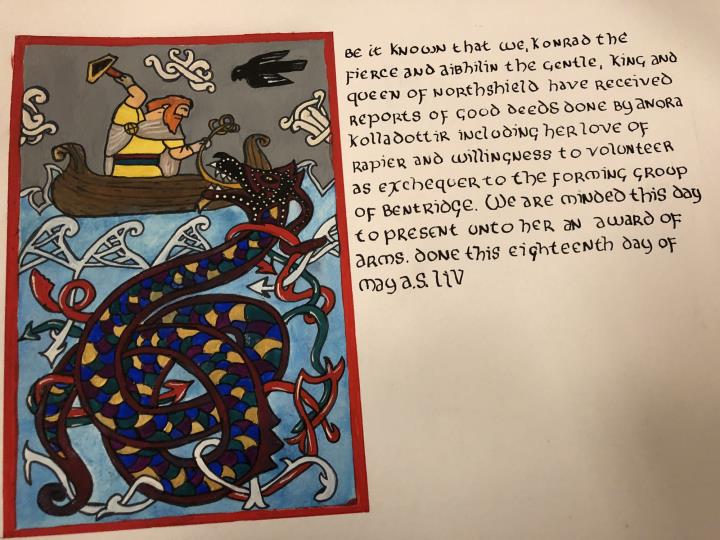 Be it known that we, Konrad the
fierce and Aibhilin the Gentle, King and
Queen of Northshield have received
reports of good deeds done by Anora
Kolladottir including her love of
rapier and willingness to volunteer
as exchequer to the forming group
of Bentridge. We are minded this day
to present unto her an award of
arms. Done this eighteenth day of
May A.S. LIV